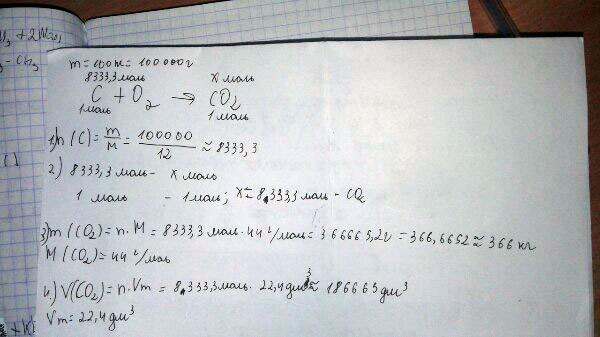 m = 100кг = 100000г
8333,3 моль x моль
C + O₂ → CO₂
1 моль 1 моль
1) n(C) = m/M = 100000/12 ≈ 8333,3
2) 8333,3 моль - x моль
1 моль - 1 моль; x = 8333,3 моль - CO₂
3) m(CO₂) = n·M = 8333,3 моль·44 г/моль = 366665,2г = 366,6652 ≈ 366 кг
M(CO₂) = 44 г/моль
4) V(CO₂) = n·Vm = 8333,3 моль · 22,4 дм³ ≈ 186665 дм³
Vm = 22,4 дм³